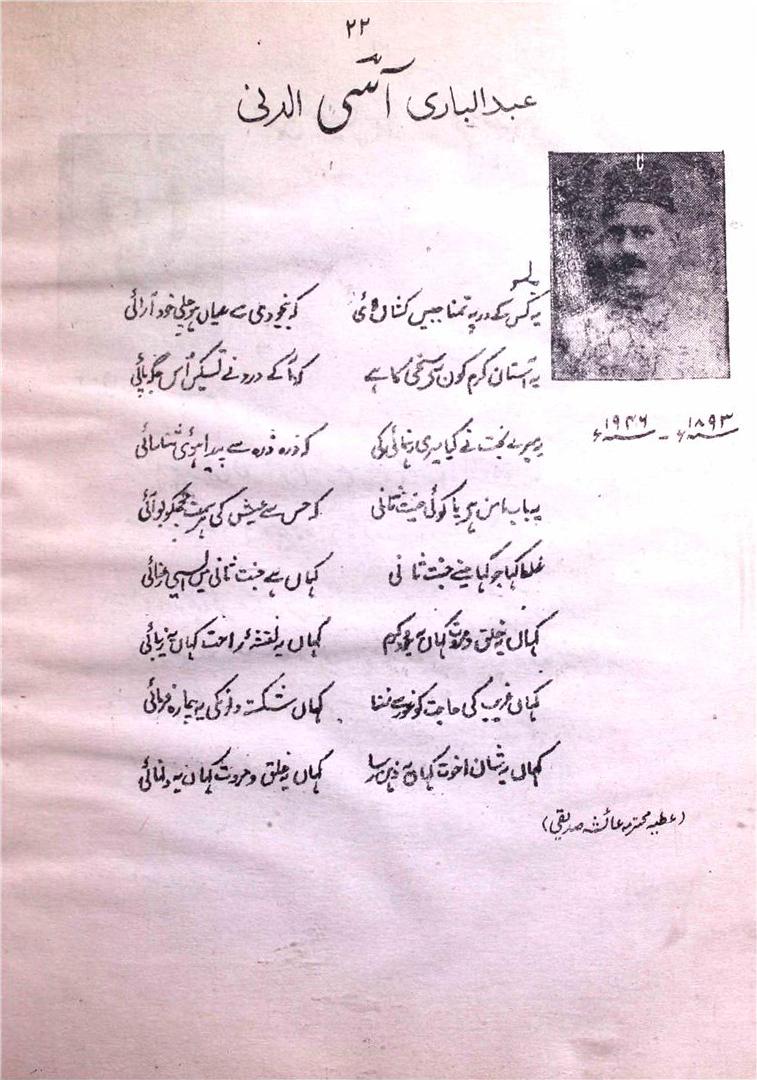 ۲۲
عبدالباری آسّی الدنی
۱۸۹۳ء - ۱۹۴۶ء
یہ کس کے در پہ تمنا جبیں کشاں لائی کہ بیخودی سے عیاں ہو چلی خود آرائی
یہ آستان کرم کون سے سخی کا ہے کہ آ کے درد نے تسکیں اس جگہ پائی
یہ میرے بخت نے کیا میری رہنمائی کی کہ ذرہ ذرہ سے پیدا ہوئی شناسائی
یہ باب امن ہے یا کوئی جنت ثانی کہ جس سے عیش کی ہر سمت مجھکو بو آئی
غلط کہا جو کہا مینے جنت ثانی کہاں ہے جنت ثانی میں ایسی رعنائی
کہاں یہ خلق و مروت کہاں یہ جود و کرم کہاں یہ نغمۂ راحت کہاں یہ زیبائی
کہاں غریب کی حاجت کو غور سے سننا کہاں شکستہ دلوں کی یہ چارہ فرمائی
کہاں یہ شان اخوت کہاں یہ ذہن رسا کہاں یہ خلق و مروت کہاں یہ دانائی
(عطیہ محترمہ عائشہ صدیقی)